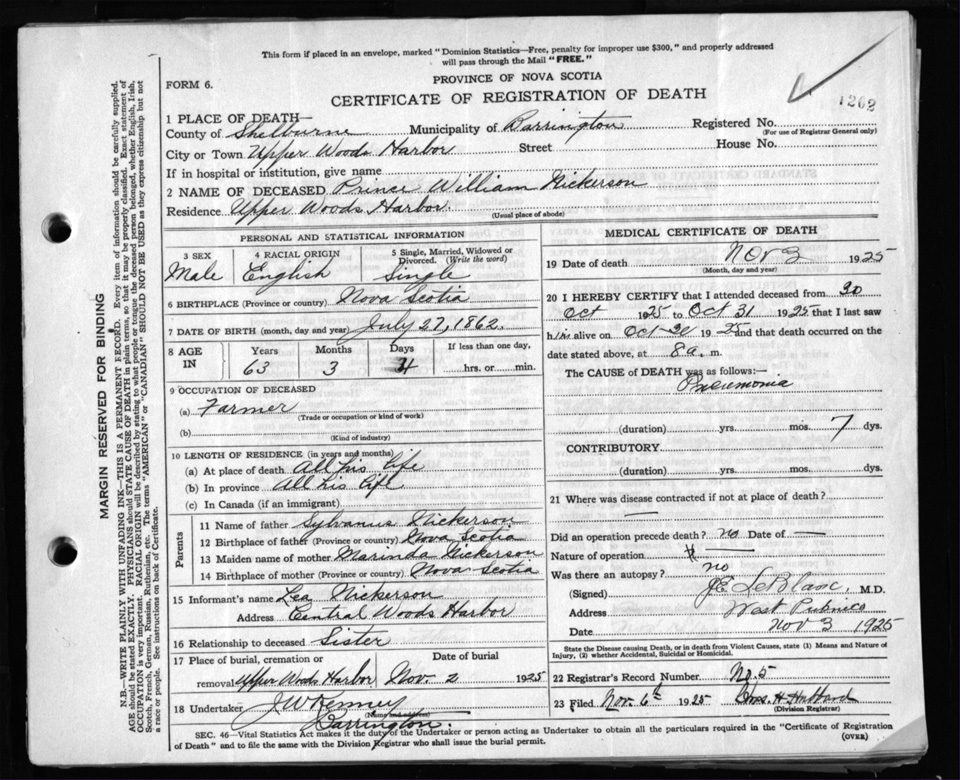 This form if placed in an envelope, marked "Dominion Statistics—Free, penalty for improper use $300," and properly addressed
will pass through the Mail "FREE."
PROVINCE OF NOVA SCOTIA
FORM 6.
CERTIFICATE OF REGISTRATION OF DEATH
1262
1 PLACE OF DEATH—
County of Shelburne Municipality of Barrington Registered No.
(For use of Registrar General only)
City or Town Upper Woods Harbor Street House No.
If in hospital or institution, give name
2 NAME OF DECEASED Prince William Nickerson
Residence Upper Woods Harbor.
(Usual place of abode)
PERSONAL AND STATISTICAL INFORMATION
3 SEX 4 RACIAL ORIGIN 5 Single, Married, Widowed or
Divorced. (Write the word)
Male English Single
6 BIRTHPLACE (Province or country) Nova Scotia
7 DATE OF BIRTH (month, day and year) July 27, 1862.
8 AGE IN Years Months Days If less than one day,
63 3 4 hrs. or min.
9 OCCUPATION OF DECEASED
(a) Farmer
(Trade or occupation or kind of work)
(b)
(Kind of industry)
10 LENGTH OF RESIDENCE (in years and months)
(a) At place of death All his life
(b) In province All his life
(c) In Canada (if an immigrant)
Parents
11 Name of father Sylvanus Nickerson
12 Birthplace of father (Province or country) Nova Scotia
13 Maiden name of mother Marinda Nickerson
14 Birthplace of mother (Province or country) Nova Scotia
15 Informant's name Lea Nickerson
Address Central Woods Harbor
16 Relationship to deceased Sister
17 Place of burial, cremation or Date of burial
removal Upper Woods Harbor Nov. 2 1925
18 Undertaker J W Kenney
(Name and address)
Barrington.
MEDICAL CERTIFICATE OF DEATH
19 Date of death Nov 2 1925
(Month, day and year)
20 I HEREBY CERTIFY that I attended deceased from 20
Oct 1925 to Oct 31 1925 that I last saw
h/is alive on Oct 31 1925 and that death occurred on the
date stated above, at 8 a. m.
The CAUSE of DEATH was as follows:—
Pneumonia
(duration) yrs. mos. 7 dys.
CONTRIBUTORY
(duration) yrs. mos. dys.
21 Where was disease contracted if not at place of death?
—
Did an operation precede death? no Date of —
Nature of operation —
Was there an autopsy? no
(Signed) J E LeBlanc, M.D.
Address West Pubnico
Date Nov 3 1925
State the Disease causing Death, or in death from Violent Causes, state (1) Means and Nature of
Injury, (2) whether Accidental, Suicidal or Homicidal.
22 Registrar's Record Number No. 5
23 Filed Nov. 6th 1925 Chas. H Hubbard
(Division Registrar)
SEC. 46—Vital Statistics Act makes it the duty of the Undertaker or person acting as Undertaker to obtain all the particulars required in the "Certificate of Registration
of Death" and to file the same with the Division Registrar who shall issue the burial permit.
(OVER)
MARGIN RESERVED FOR BINDING
N.B.—WRITE PLAINLY WITH UNFADING INK—THIS IS A PERMANENT RECORD. Every item of information should be carefully supplied.
AGE should be stated EXACTLY. PHYSICIANS should STATE CAUSE OF DEATH in plain terms, so that it may be properly classified. Exact statement of
OCCUPATION is very important. RACIAL ORIGIN will be described by stating to what people or tongue the deceased person belonged, whether English, Irish,
Scotch, French, German, Russian, Ruthenian, etc. The terms "AMERICAN" or "CANADIAN" SHOULD NOT BE USED as they express citizenship but not
a race or people. See instructions on back of Certificate.